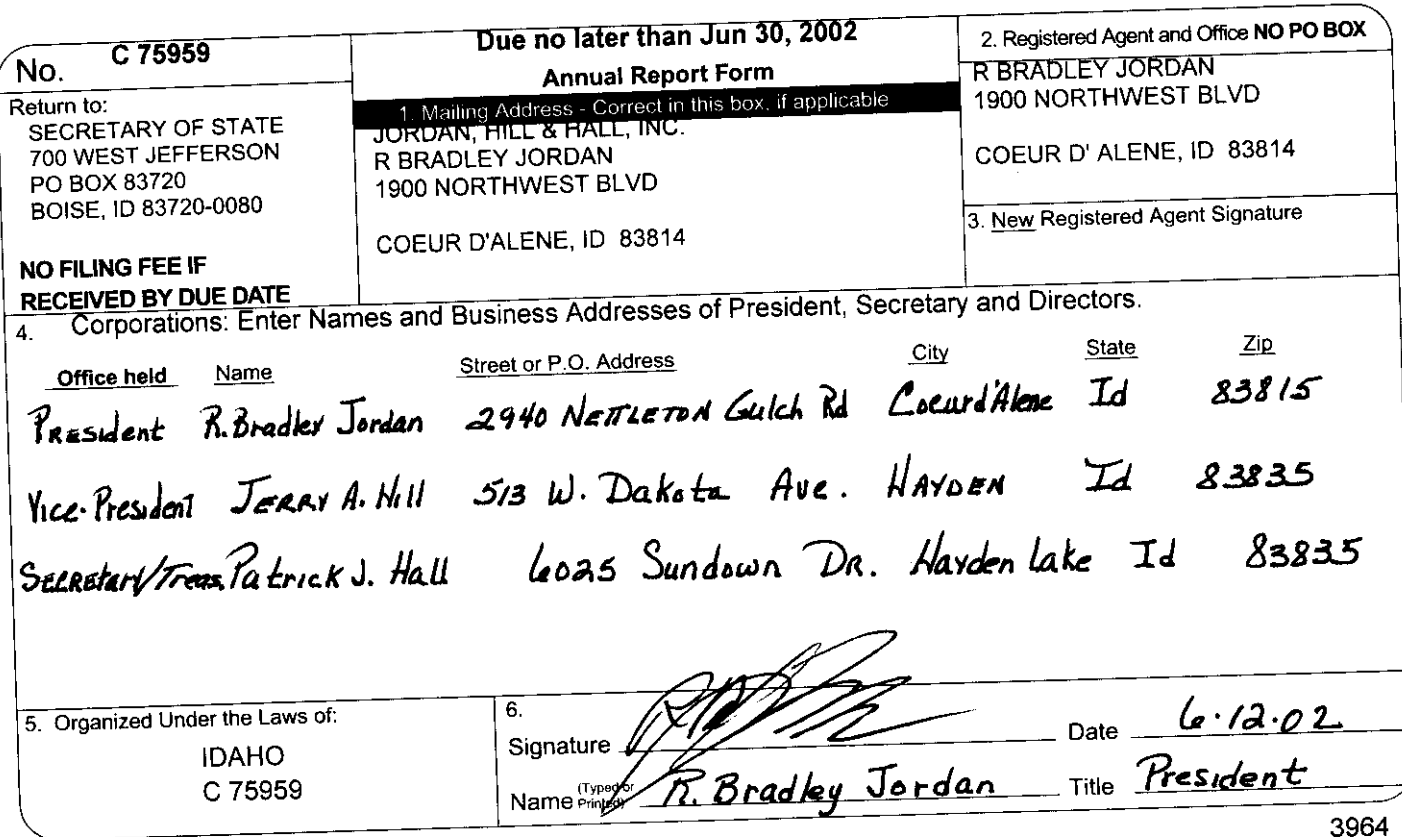 No. C 75959
Return to:
SECRETARY OF STATE
700 WEST JEFFERSON
PO BOX 83720
BOISE, ID 83720-0080
NO FILING FEE IF
RECEIVED BY DUE DATE
Due no later than Jun 30, 2002
Annual Report Form
1. Mailing Address - Correct in this box, if applicable
JORDAN, HILL & HALL, INC.
R BRADLEY JORDAN
1900 NORTHWEST BLVD
COEUR D'ALENE, ID 83814
2. Registered Agent and Office NO PO BOX
R BRADLEY JORDAN
1900 NORTHWEST BLVD
COEUR D' ALENE, ID 83814
3. New Registered Agent Signature
4. Corporations: Enter Names and Business Addresses of President, Secretary and Directors.
Office held Name Street or P.O. Address City State Zip
President R. Bradley Jordan 2940 Nettleton Gulch Rd Coeur d'Alene Id 83815
Vice-President Jerry A. Hill 513 W. Dakota Ave. Hayden Id 83835
Secretary/Treas. Patrick J. Hall 6025 Sundown Dr. Hayden Lake Id 83835
5. Organized Under the Laws of:
IDAHO
C 75959
6.
Signature Date 6.12.02
Name (Typed or Printed) R. Bradley Jordan Title President
3964